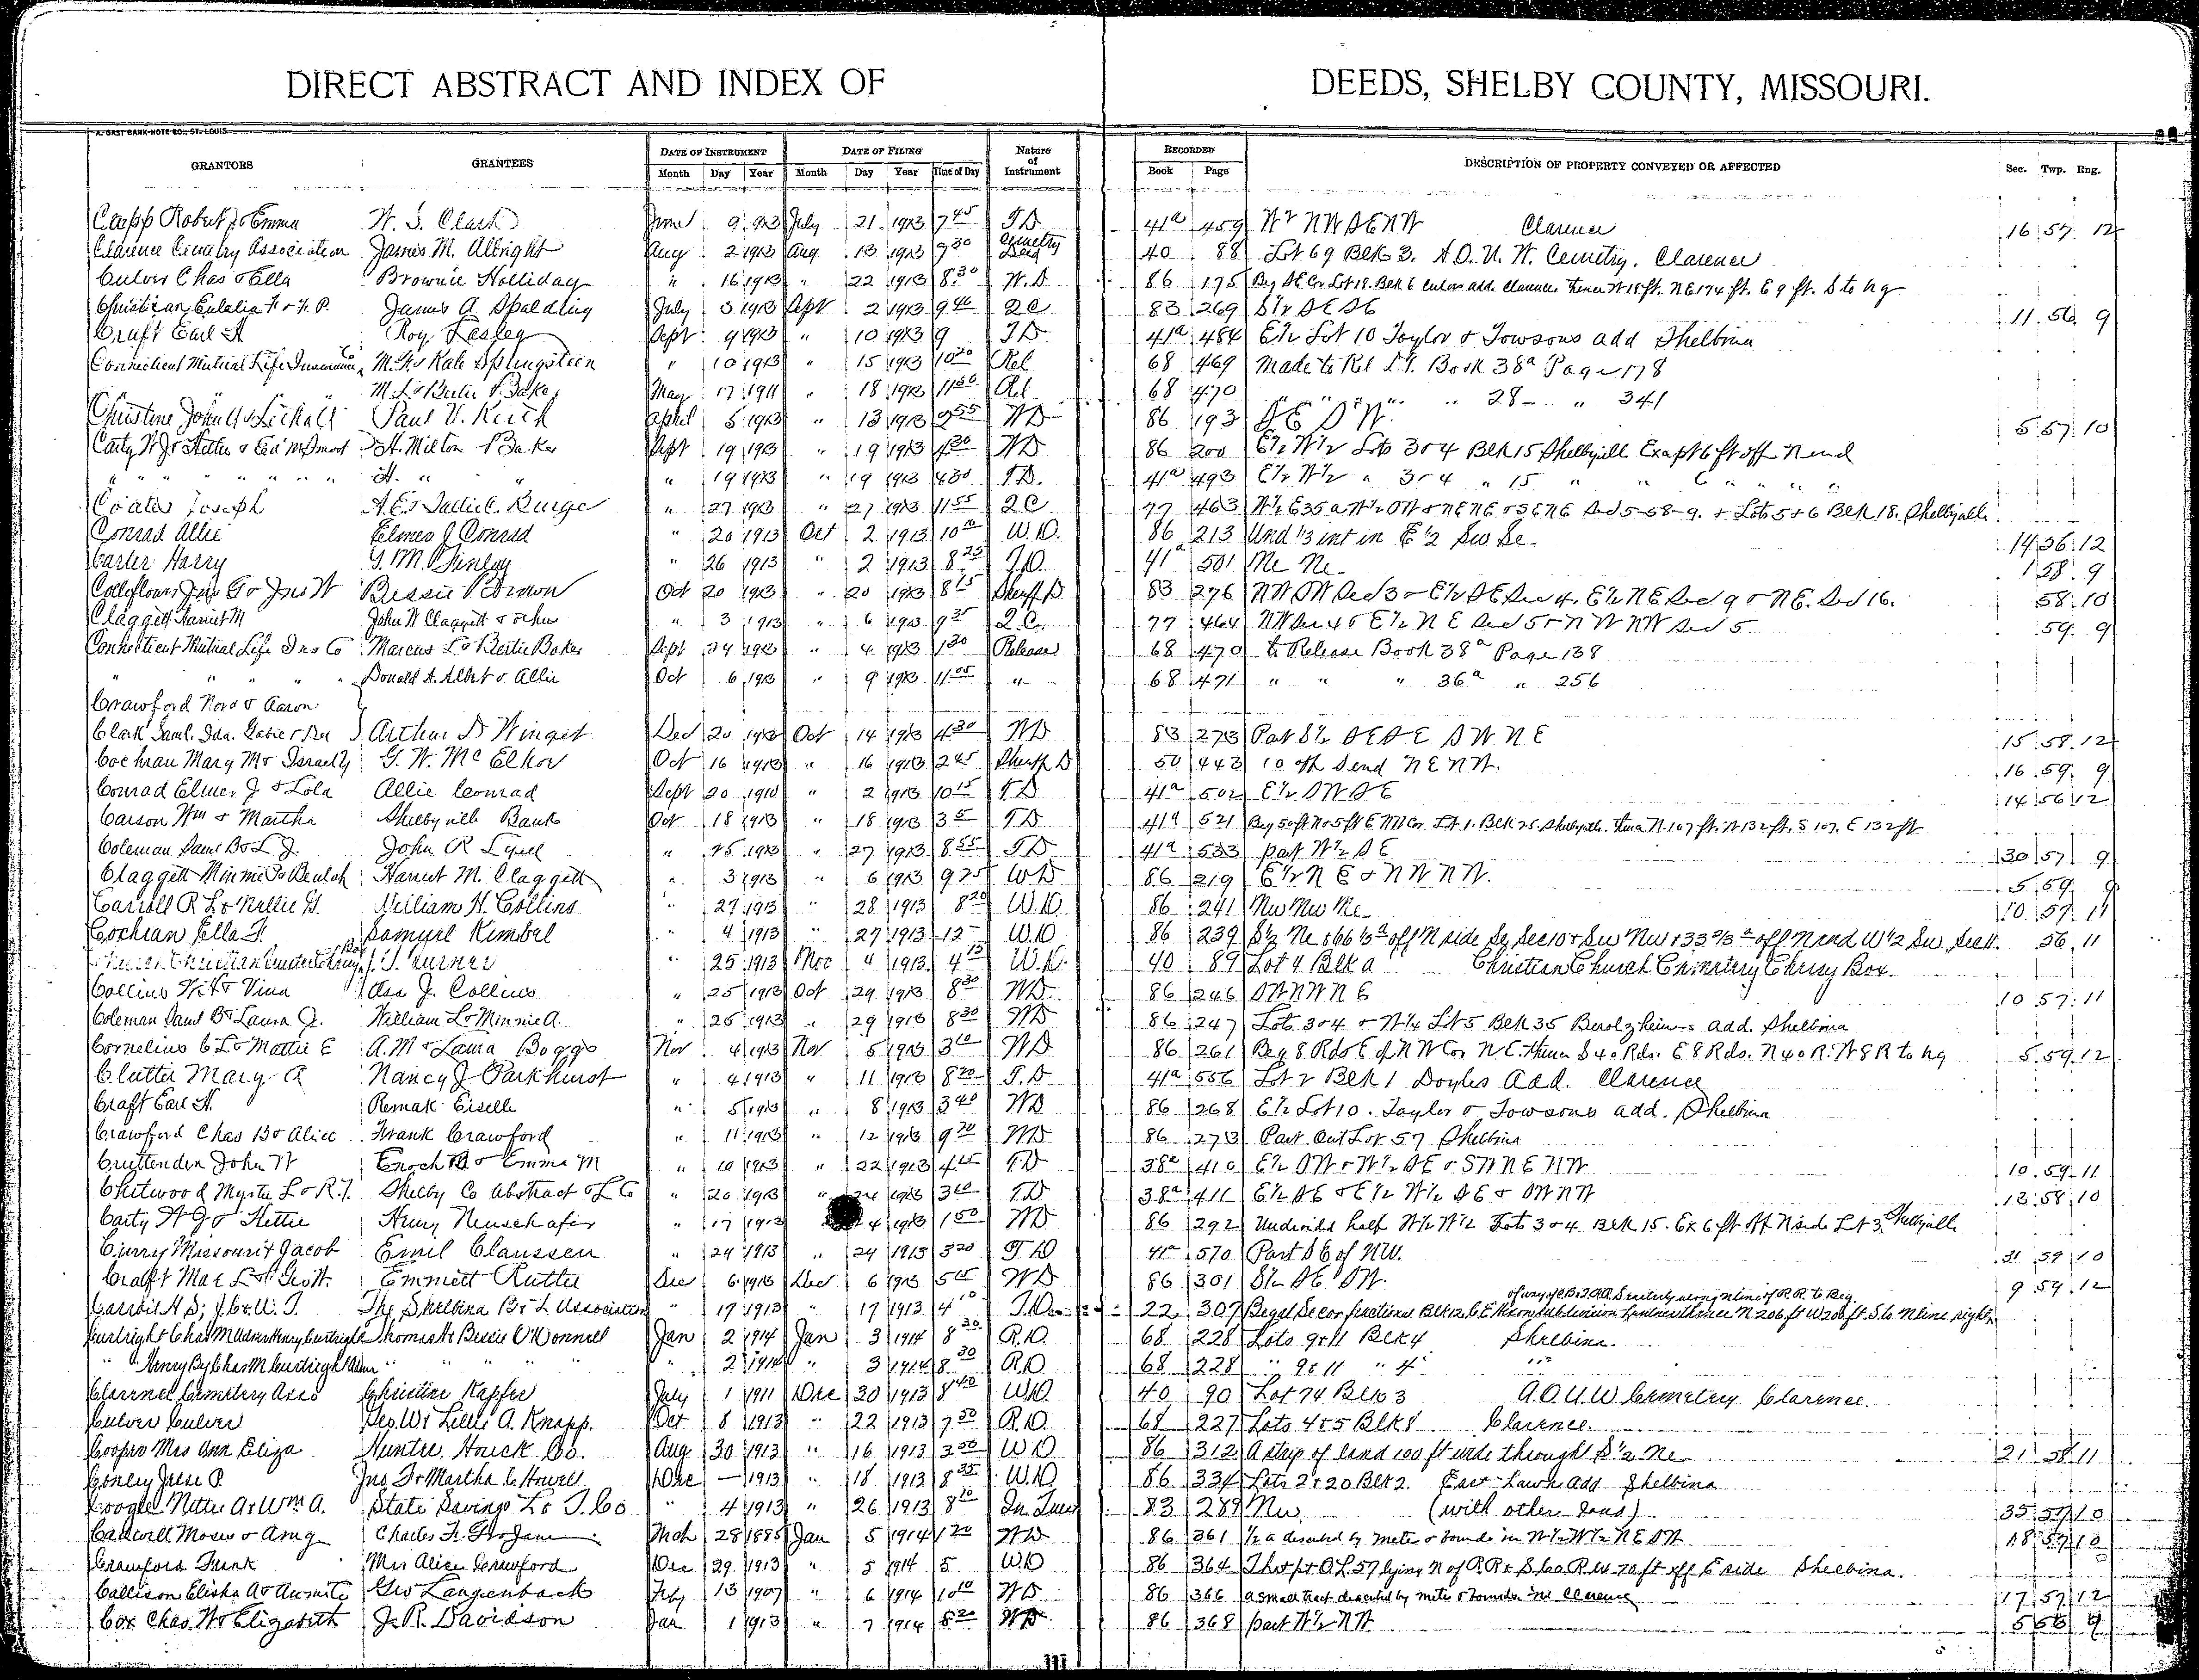 DIRECT ABSTRACT AND INDEX OF DEEDS, SHELBY COUNTY, MISSOURI.
A. GAST BANK-NOTE CO., ST. LOUIS
GRANTORS GRANTEES DATE OF INSTRUMENT DATE OF FILING Nature of Instrument RECORDED DESCRIPTION OF PROPERTY CONVEYED OR AFFECTED Sec. Twp. Rng.
Month Day Year Month Day Year Time of Day Book Page
Capp Robert & Emma W. S. Clark June 9 1913 July 21 1913 7 45 TD 41a 459 W2 NW SE NW Clarence 16 57 12
Clarence Cemetry Association James M. Albright Aug 2 1913 Aug 13 1913 9 30 Cemetry Deed 40 88 Lot 69 Blk 3. A.O.U.W. Cemetry, Clarence
Culver Chas & Ella Brownie Holliday " 16 1913 " 22 1913 8 30 W.D 86 175 Beg SE Cor Lot 18. Blk 6 Culvers add. Clarence Thence W 18 ft. N 174 ft. E 9 ft. S to beg
Christian Eulalia F & P. James A Spalding July 3 1913 Sept 2 1913 9 40 QC 83 269 S½ SE SE 11 56 9
Craft Earl H Roy Lasley Sept 9 1913 " 10 1913 9 TD 41a 484 E½ Lot 10 Taylor & Towsons add Shelbina
Connecticut Mutual Life Insurance Co M. F. & Kate Springsteen " 10 1913 " 15 1913 10 20 Rel 68 469 Made to Rel D.T. Book 38a Page 178
" " M. L. & Bertie Baker May 17 1911 " 18 1913 11 50 Rel 68 470 " " " " " 28 " 341
Christine John Paul V. Keith April 5 1913 " 13 1913 9 55 WD 86 193 SE SW. 5 57 10
Carty W. J. & Hettie & Ed McSmoot H. Milton Baker Sept 19 1913 " 19 1913 4 30 WD 86 200 E½ W½ Lots 3 & 4 Blk 15 Shelbyville Except 6 ft off N end
" " " " " " H. " " " 19 1913 " 19 1913 4 30 T.D. 41a 493 E½ W½ " 3 & 4 " 15 " " 6 " " " "
Coates Joseph A. E. & Sallie C. Burge " 27 1913 " 27 1913 11 55 QC 77 463 W½ E 35 a W½ SW & NE NE & SE NE Sec 5-58-9. & Lots 5 & 6 Blk 18. Shelbyville
Conrad Allie Elmer J Conrad " 20 1913 Oct 2 1913 10 10 W.D. 86 213 Und ⅓ int in E ½ Sw Se 14 56 12
Carter Harry G. M. Finley " 26 1913 " 2 1913 8 25 T.D. 41a 501 Ne Ne 1 58 9
Colleflower Jno G & Jno W Bessie Brown Oct 20 1913 " 20 1913 8 15 Sheriff D 83 276 NW SW Sec 3 & E½ SE Sec 4, E½ NE Sec 9 & NE. Sec 16. 58 10
Claggett Harriet M John W Claggett & other " 3 1913 " 6 1913 9 25 Q.C. 77 464 NW Sec 4 & E½ NE Sec 5 & NW NW Sec 5 59 9
Connecticut Mutual Life Ins Co Marcus L & Bertie Baker Sept 24 1913 " 4 1913 1 30 Release 68 470 to Release Book 38a Page 138
" " " " Donald A. Albert & Allie Oct 6 1913 " 9 1913 11 05 " 68 471 " " " 36a " 256
Crawford Nora & Aaron
Clark Saml. Ida. Arthur D Winget Dec 20 1913 Oct 14 1913 4 30 WD 83 273 Part S½ SE SE SW NE 15 58 12
Cochran Mary M & Israel G. W. McElhoy Oct 16 1913 " 16 1913 2 45 Sheriff D 50 443 10 off S end NE NW. 16 59 9
Conrad Elmer J & Lola Allie Conrad Sept 20 1910 " 2 1913 10 15 TD 41a 502 E½ SW SE 14 56 12
Carson Wm & Martha Shelbyville Bank Oct 18 1913 " 18 1913 3 5 TD 41a 521 Beg 50 ft N & 5 ft E NW Cor Lot 1. Blk 25. Shelbyville. Thence N. 107 ft. W 132 ft. S 107. E 132 ft
Coleman Saml B & L J. John R Lyell " 25 1913 " 27 1913 8 55 TD 41a 533 part W½ SE 30 57 9
Claggett Minnie & Beulah Harriet M. Claggett " 3 1913 " 6 1913 9 25 WD 86 219 E½ NE & NW NW. 5 59 9
Carroll R L & Nellie G. William H. Collins " 27 1913 " 28 1913 8 20 W.D. 86 241 Nw Nw Ne 10 57 11
Cochran Ella F. Samuel Kimbel " 4 1913 " 27 1913 12 W.D 86 239 S½ Ne & 66⅔ a off N side Se Sec 10 & Sw Nw & 33⅔ a off N end W½ Sw Sec 11. 56 11
J. T. Turner " 25 1913 Nov 4 1913 4 15 W.D. 40 89 Lot 4 Blk a Christian Church Cemetery Cherry Box.
Collins W. H & Vina Asa J. Collins " 25 1913 Oct 29 1913 8 30 WD. 86 246 SW NW NE 10 57 11
Coleman Saml B & Laura J. William L & Minnie A. " 25 1913 " 29 1913 8 30 WD 86 247 Lots 3 & 4 & W¼ Lot 5 Blk 35 Berolzheimers add. Shelbina
Cornelius C L & Mattie E A. M & Laura Boggs Nov 4 1913 Nov 5 1913 3 10 WD 86 261 Beg 8 Rds E of NW Cor NE. thence S 40 Rds. E 8 Rds. N 40 R. W 8 R to beg 5 59 12
Clutter Mary A Nancy J Parkhurst " 4 1913 " 11 1913 8 20 T.D 41a 556 Lot 2 Blk 1 Doyles Add. Clarence
Craft Earl H. Remak Eiselle " 5 1913 " 8 1913 3 40 WD 86 268 E½ Lot 10. Taylor & Towsons add. Shelbina
Crawford Chas B & Alice Frank Crawford " 11 1913 " 12 1913 9 20 WD 86 273 Part Out Lot 57 Shelbina
Cruttenden John W Enoch & Emma M " 10 1913 " 22 1913 4 15 TD 38a 410 E½ SW & W½ SE & SW NE NW 10 59 11
Chitwood Myrtle L & R. T. Shelby Co Abstract & L Co " 20 1913 " 24 1913 3 10 TD 38a 411 E½ SE & E½ W½ SE & SW NW 13 58 10
Carty W J & Hettie Henry Neuschafer " 17 1913 4 1913 1 50 WD 86 292 Undivided half W½ W½ Lots 3 & 4 Blk 15. Ex 6 ft off N side Lot 3 Shelbyville
Curry Missouri & Jacob Emil Claussen " 24 1913 " 24 1913 3 20 T.D 41a 570 Part SE of NW. 31 59 10
Craft Mae L & Scott Emmett Rutter Dec 6 1913 Dec 6 1913 5 15 WD 86 301 S½ SE SW. 9 59 12
The Shelbina B & L Association " 17 1913 " 17 1913 4 10 T.D 22 307 of way of C.B. & Q.R.R. S easterly along N line of R.R. to Beg
Curtright Chas M Admr Henry Curtright Thomas & Bessie O'Donnell Jan 2 1914 Jan 3 1914 8 30 R.D. 68 228 Lots 9 & 11 Blk 4 Shelbina.
" Henry By Chas M Curtright Adm " " " " " 2 1914 " 3 1914 8 30 R.D 68 228 " 9 & 11 " 4 "
Clarence Cemetery Asso Christine Kapfer July 1 1911 Dec 30 1913 8 40 W.D. 40 90 Lot 74 Blk 3 A.O.U.W. Cemetery Clarence.
Culver Culver Geo. W & Lillie A. Knapp. Oct 8 1913 " 22 1913 7 50 R.D. 68 227 Lots 4 & 5 Blk 8 Clarence.
Cooper Mrs Ann Eliza Huntie Houck Co. Aug 30 1913 " 16 1913 3 50 W.D 86 312 A strip of land 100 ft wide through S½ Ne 21 58 11
Conley Jesse P. Jno T & Martha C. Howell Dec — 1913 " 18 1913 8 35 W.D 86 334 Lots 2 & 20 Blk 2. East Lawn Add Shelbina
Coogle Nettie A & Wm A. State Savings L & T. Co " 4 1913 " 26 1913 8 10 83 289 Nw (with other lands) 35 57 10
Caldwell Moses & Amy Charles F. & Jane Mch 28 1885 Jan 5 1914 1 20 WD 86 361 ½ a described by metes & bounds in W½ W½ NE SW 18 59 10
Crawford Frank Mrs Alice Crawford Dec 29 1913 " 5 1914 5 W.D 86 364 That pt O.L. 57 lying N of R.R & S. Co. R. W. 70 ft off E side Shelbina.
Callison Elisha A & Geo Langenback Feby 13 1907 " 6 1914 10 10 WD 86 366 a small tract described by metes & bounds in Clarence 17 57 12
Cox Chas. W & Elizabeth J. R. Davidson Jan 1 1913 " 7 1914 8 20 WD 86 368 part W½ NW 5 58 9
111